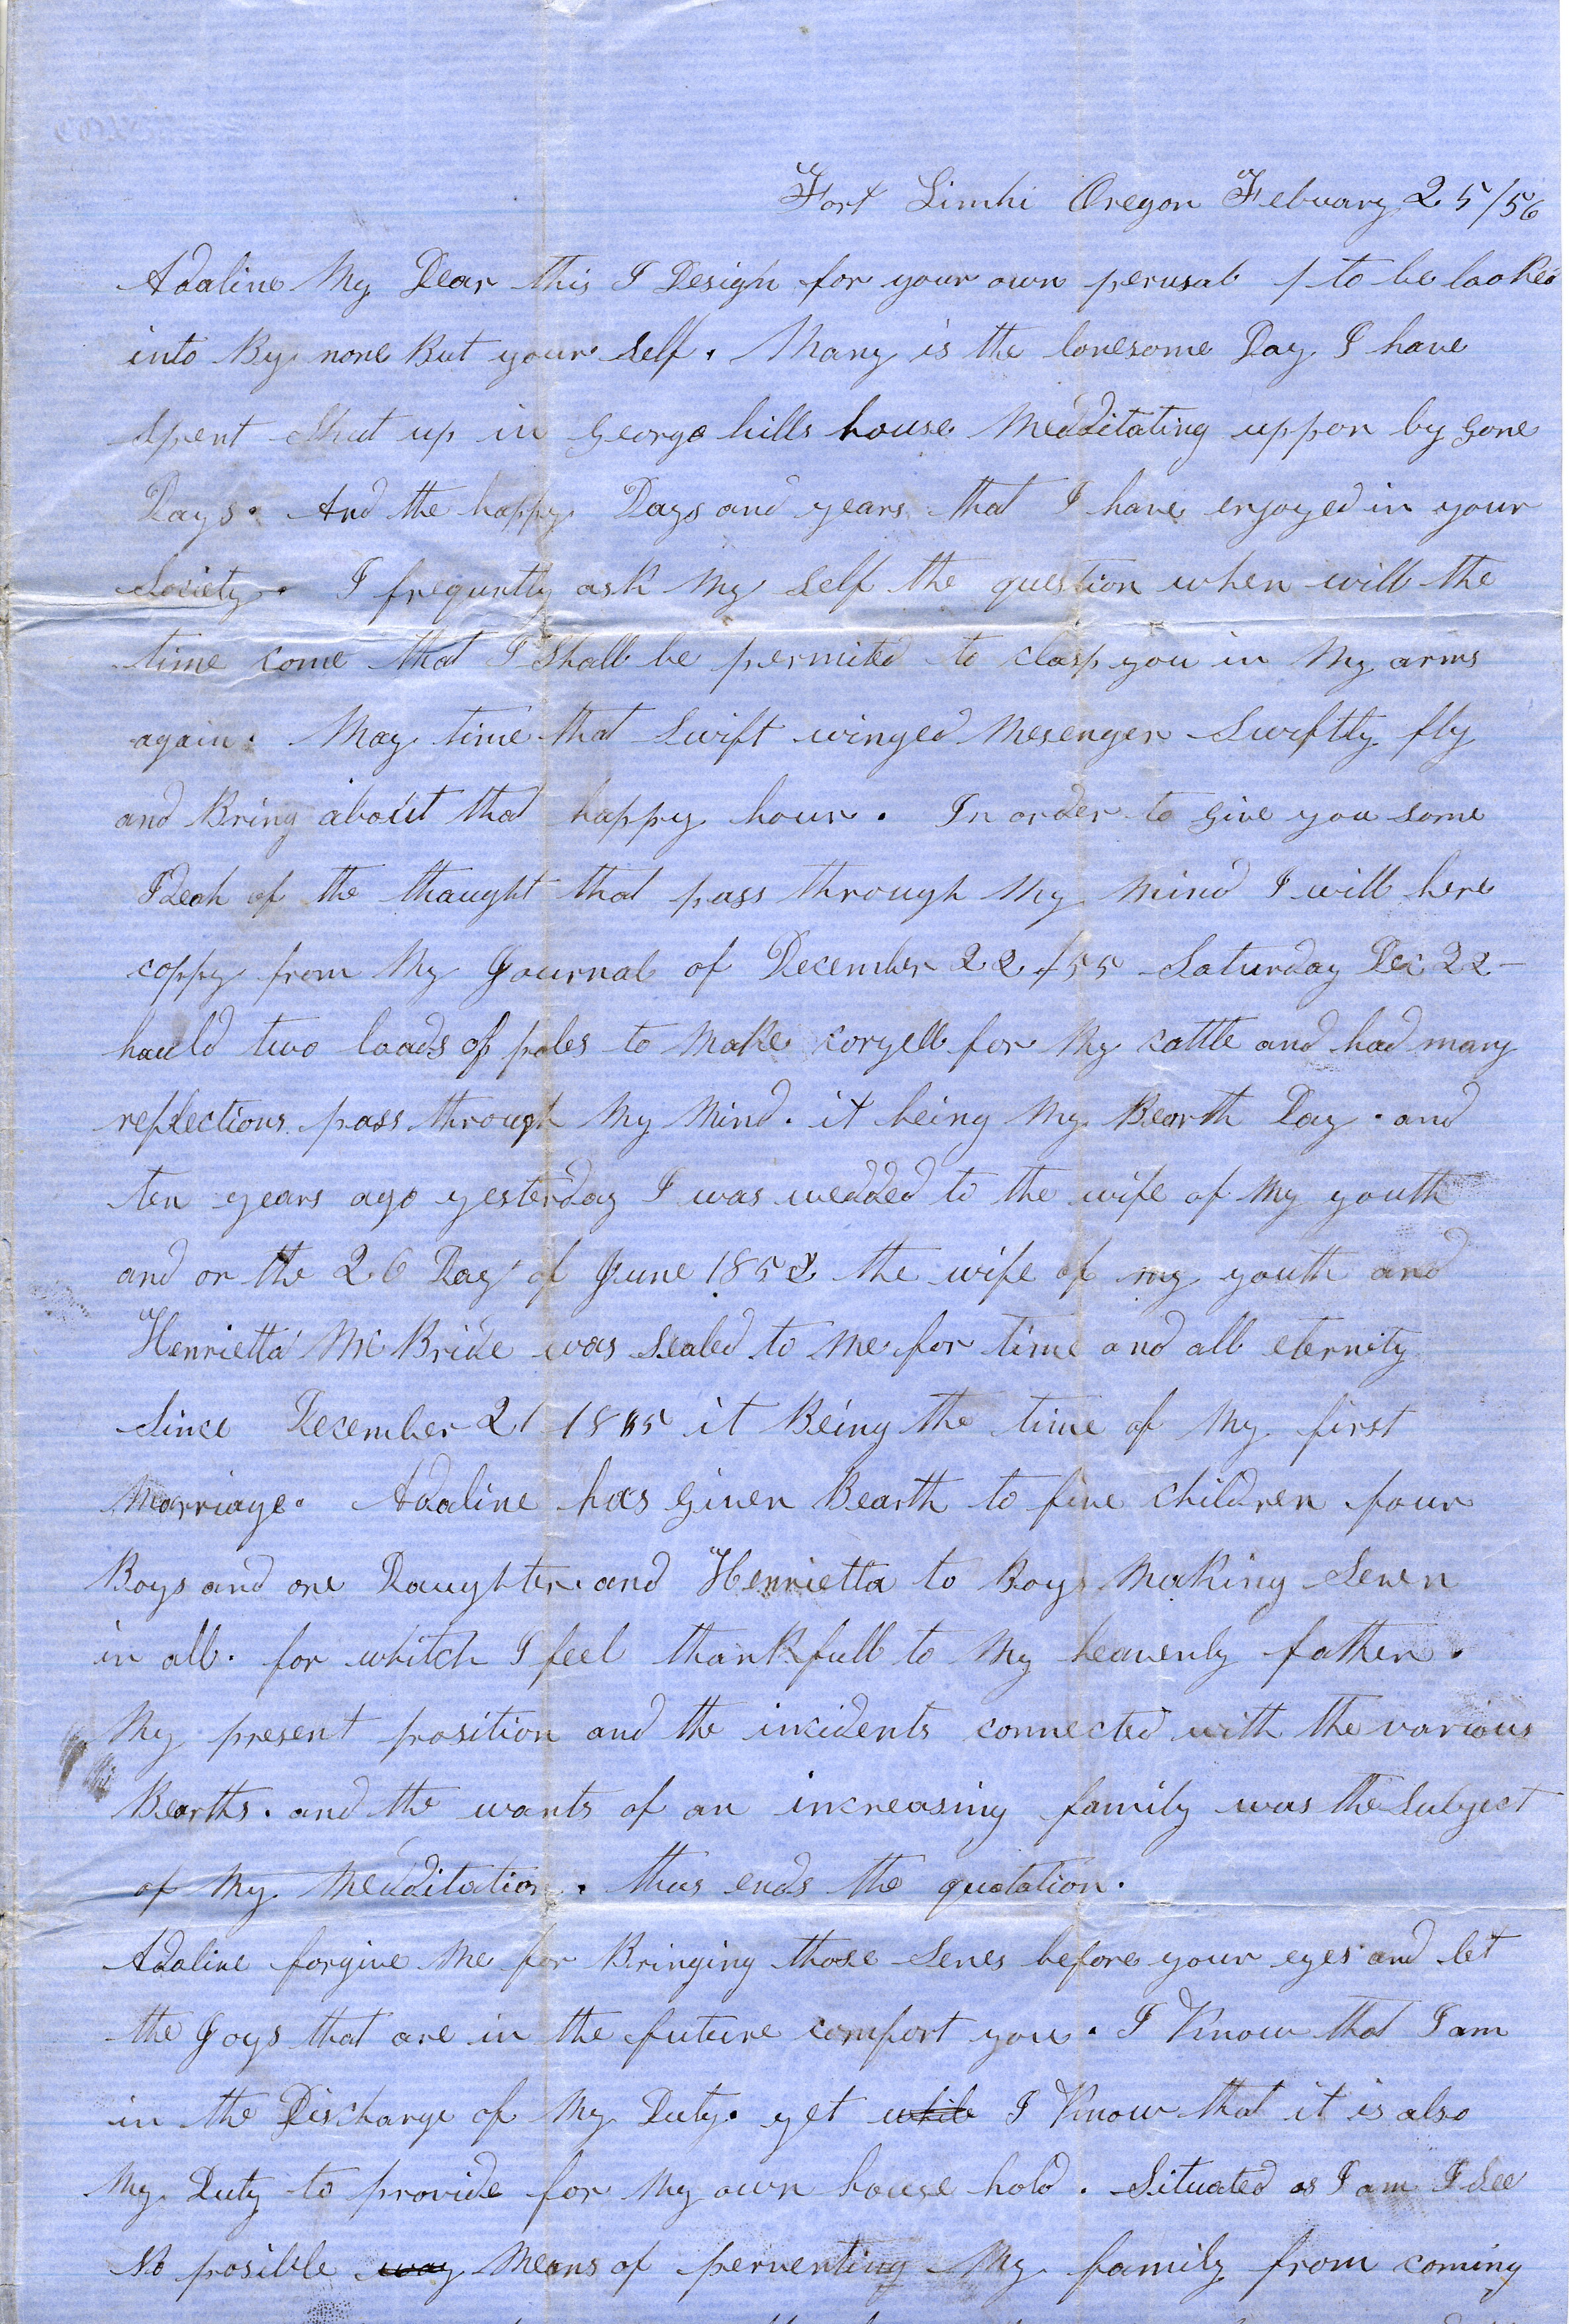 Fort Limhi Oregon Febuary 25/56
Adaline My Dear this I Design for your own perusal & to be looked
into By none But your self. Many is the lonesome Day I have
spent shut up in George hills house Medditating uppon by gone
Days. And the happy Days and years that I have enjoyed in your
society. I frequntly ask My self the question when will the
time come that I shall be permited to clasp you in My arms
again. May time that swift winged Mesenger swiftly fly
and Bring about that happy hour. In order to give you some
Ideah of the thaught that pass through My Mind I will here
coppy from My Journal of December 22 /55 Saturday Dec 22 -
hauld two loads of poles to Make coryell for My cattle and had many
reflections pass through My Mind. it being My Bearth Day. and
ten years ago yesterday I was wedded to the wife of My youth
and on the 26 Day of June 1852 the wife of my youth and
Henrietta Mc Bride was sealed to Me for time and all eternity
since December 21 1845 it Being the time of My first
Marriage. Adaline has given Bearth to five children four
Boys and one Daughter. and Henrietta to Boys Making seven
in all. for whitch I feel thankfull to My heavenly father.
My present position and the incidents connected with the various
Bearths. and the wants of an increasing family was the subject
of My Medditation. thus ends the quotation.
Adaline forgive Me for Bringing those senes before your eyes and let
the Joys that are in the future comfort you. I Know that I am
in the Discharge of My Duty. yet while I Know that it is also
My Duty to provide for My own house hold. Situated as I am I see
No posible way Means of perventing My family from coming